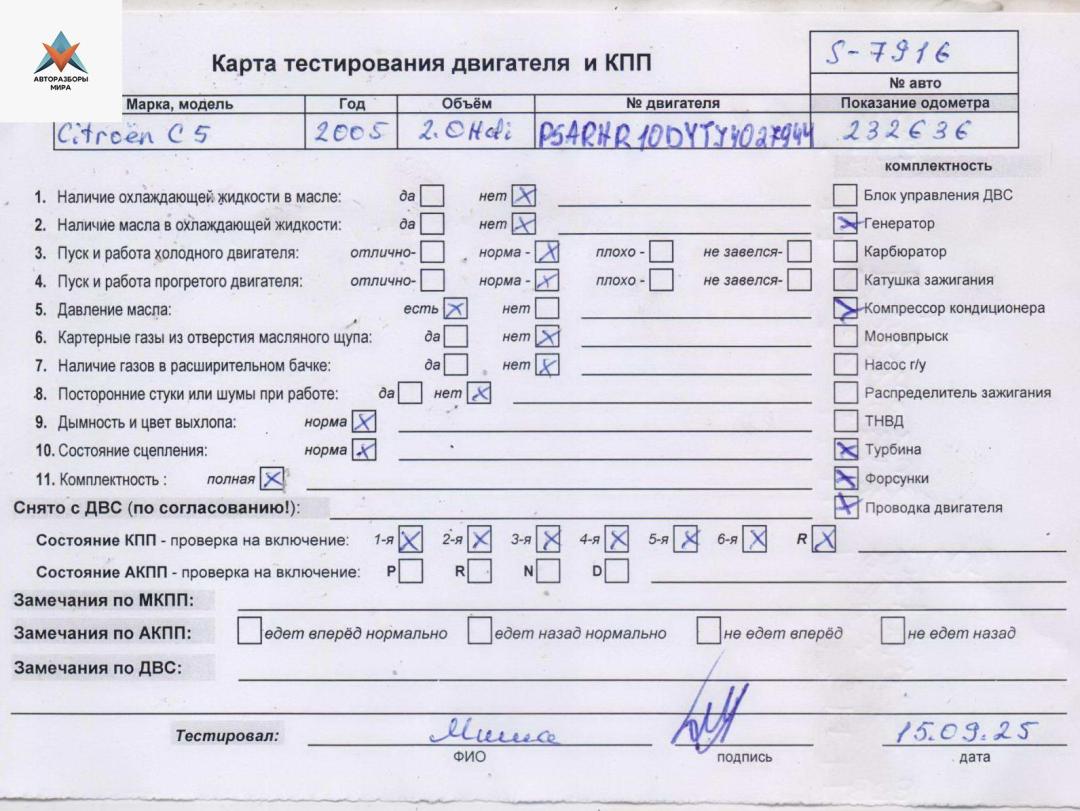 АВТОРАЗБОРЫ
МИРА
Карта тестирования двигателя и КПП
S-7916
№ авто
Марка, модель Год Объём № двигателя Показание одометра
Citroën C5 2005 2.0Hdi PSARHR10DYTJ4027944 232636
комплектность
1. Наличие охлаждающей жидкости в масле: да нет X Блок управления ДВС
2. Наличие масла в охлаждающей жидкости: да нет X X Генератор
3. Пуск и работа холодного двигателя: отлично- норма - X плохо - не завелся- Карбюратор
4. Пуск и работа прогретого двигателя: отлично- норма - X плохо - не завелся- Катушка зажигания
5. Давление масла: есть X нет X Компрессор кондиционера
6. Картерные газы из отверстия масляного щупа: да нет X Моновпрыск
7. Наличие газов в расширительном бачке: да нет X Насос г/у
8. Посторонние стуки или шумы при работе: да нет X Распределитель зажигания
9. Дымность и цвет выхлопа: норма X ТНВД
10. Состояние сцепления: норма X X Турбина
11. Комплектность : полная X X Форсунки
Снято с ДВС (по согласованию!): X Проводка двигателя
Состояние КПП - проверка на включение: 1-я X 2-я X 3-я X 4-я X 5-я X 6-я X R X
Состояние АКПП - проверка на включение: P R N D
Замечания по МКПП:
Замечания по АКПП: едет вперёд нормально едет назад нормально не едет вперёд не едет назад
Замечания по ДВС:
Тестировал: Миша 15.09.25
ФИО подпись дата